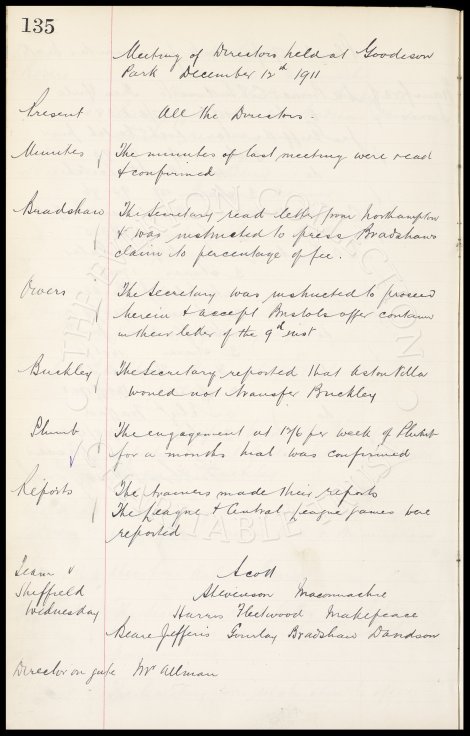 135
Meeting of Directors held at Goodison
Park December 12th 1911
Present All the Directors.
Minutes The minutes of last meeting were read
& confirmed
Bradshaw The Secretary read letter from Northampton
& was instructed to press Bradshaws
claim to percentage of fee.
Owers The Secretary was instructed to proceed
herein & accept Bristols offer contained
in their letter of the 9th inst
Buckley The Secretary reported that Aston Villa
would not transfer Buckley
Plumb The engagement at 12/6 per week of
for a months trial was confirmed
Reports The trainers made their reports
The League & Central League games were
reported
Team v Scott
Sheffield Stevenson Maconnachie
Wednesday Harris Fleetwood Makepeace
Beare Jefferis Gourlay Bradshaw Davidson
Director on gate Mr Allman